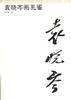 袁晓岑画孔雀
袁晓岑